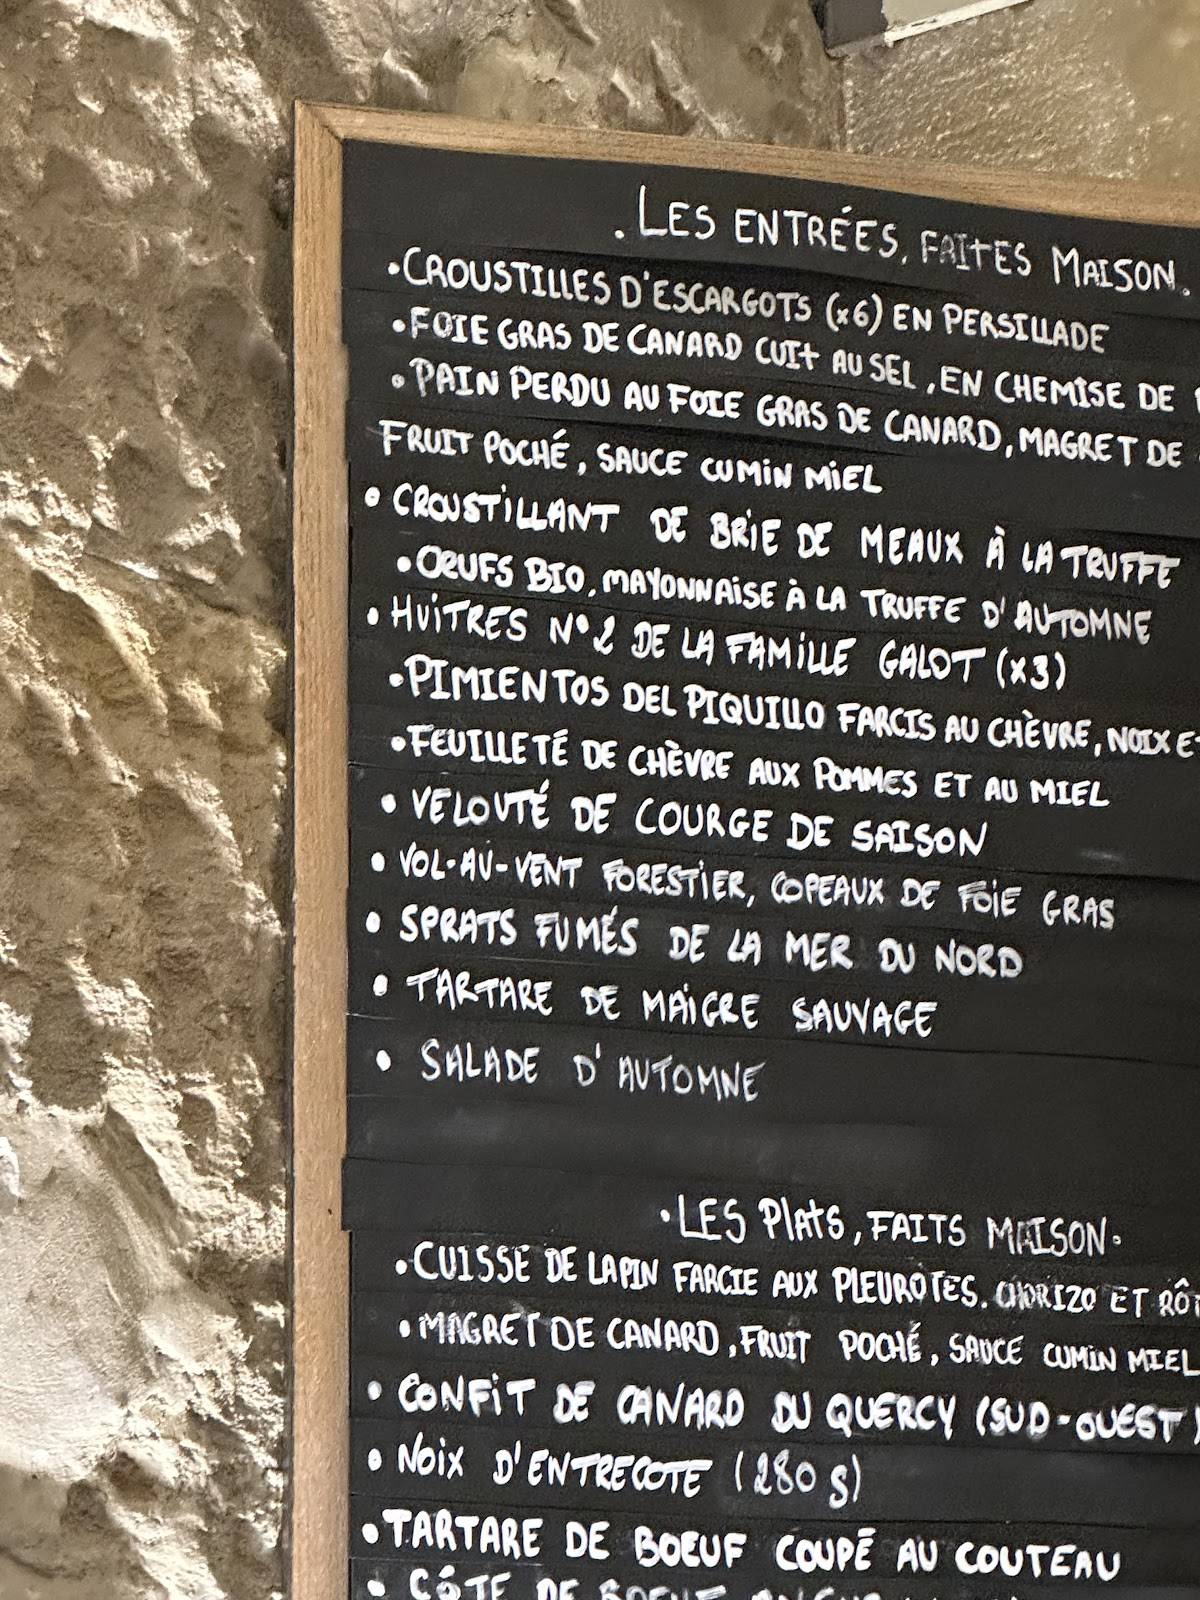 . LES ENTRÉES, FAITES MAISON.
• CROUSTILLES D'ESCARGOTS (x6) EN PERSILLADE
• FOIE GRAS DE CANARD CUIT AU SEL, EN CHEMISE DE
• PAIN PERDU AU FOIE GRAS DE CANARD, MAGRET DE
FRUIT POCHÉ, SAUCE CUMIN MIEL
• CROUSTILLANT DE BRIE DE MEAUX À LA TRUFFE
• ŒUFS BIO, MAYONNAISE À LA TRUFFE D'AUTOMNE
• HUITRES N°2 DE LA FAMILLE GALOT (x3)
• PIMIENTOS DEL PIQUILLO FARCIS AU CHÈVRE, NOIX ET
• FEUILLETÉ DE CHÈVRE AUX POMMES ET AU MIEL
• VELOUTÉ DE COURGE DE SAISON
• VOL-AU-VENT FORESTIER, COPEAUX DE FOIE GRAS
• SPRATS FUMÉS DE LA MER DU NORD
• TARTARE DE MAIGRE SAUVAGE
• SALADE D'AUTOMNE
• LES PLATS, FAITS MAISON •
• CUISSE DE LAPIN FARCIE AUX PLEUROTES. CHORIZO ET
• MAGRET DE CANARD, FRUIT POCHÉ, SAUCE CUMIN MIEL
• CONFIT DE CANARD DU QUERCY (SUD-OUEST)
• NOIX D'ENTRECOTE (280 g)
• TARTARE DE BOEUF COUPÉ AU COUTEAU
• CÔTE DE BOEUF